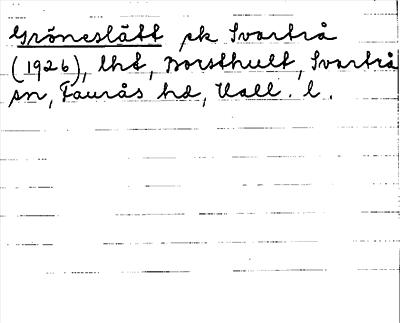 Gröneslätt sk Svartrå
(1926), lht, Borsthult, Svartrå
sn, Faurås hd, Hall. l.